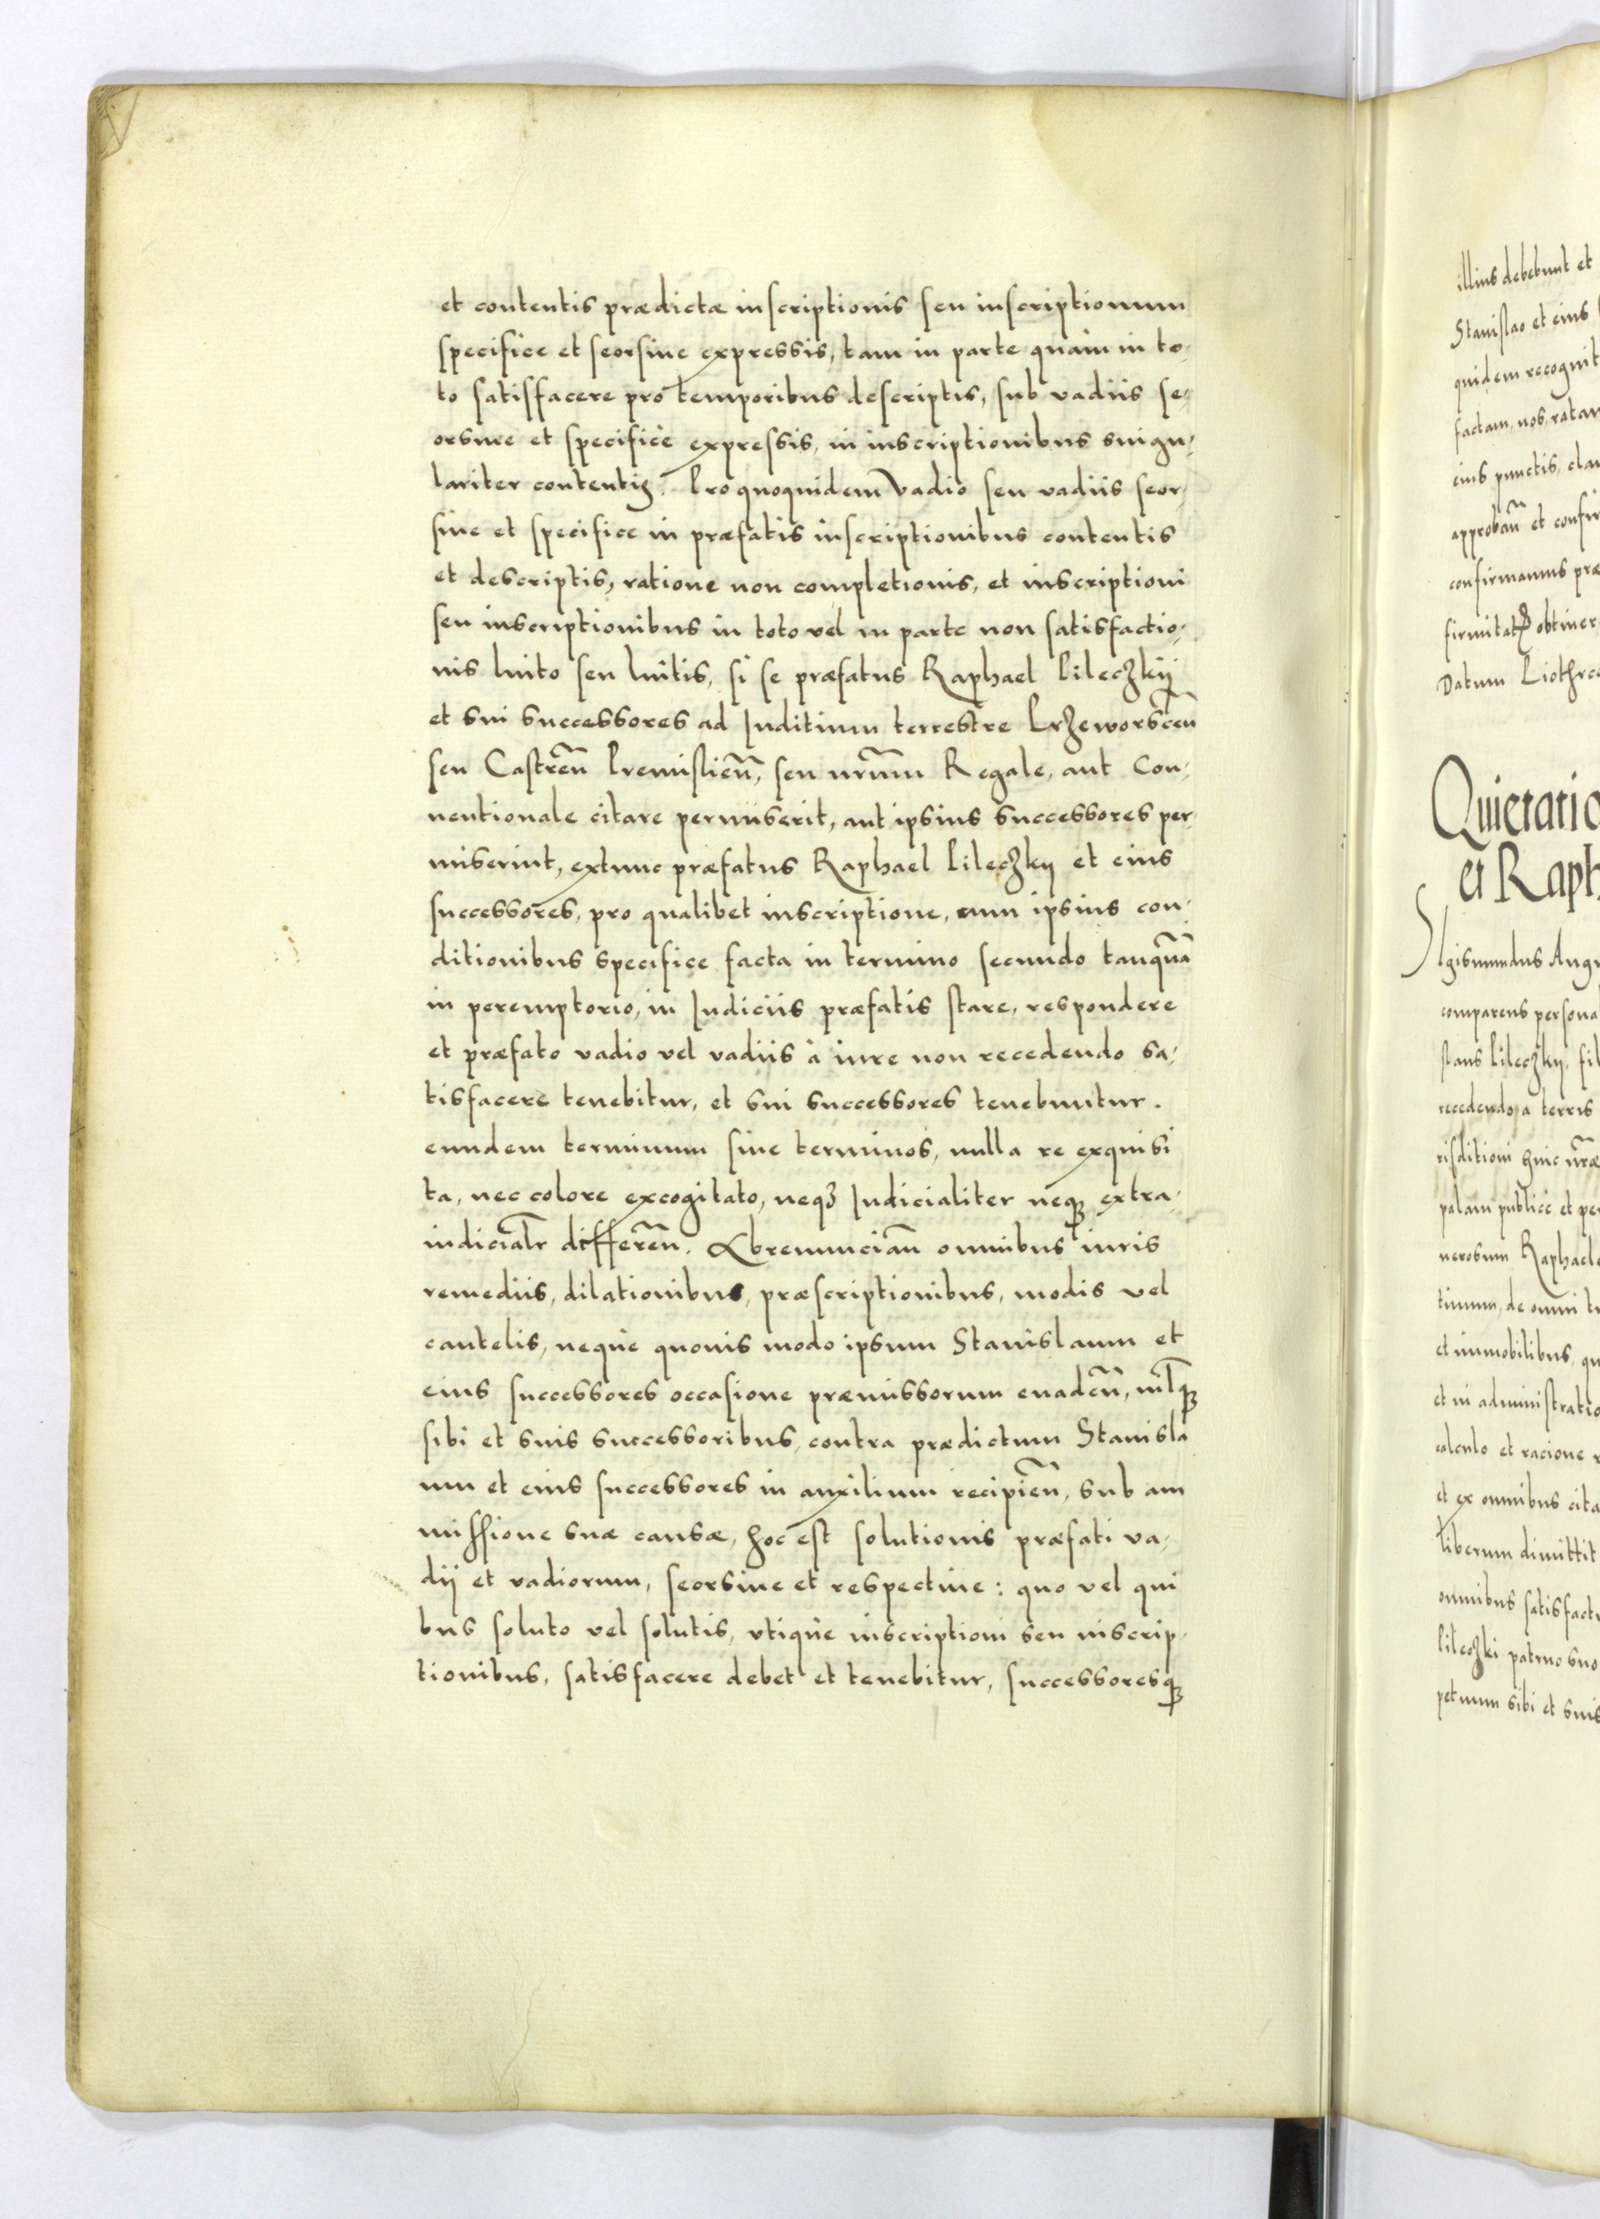 et contentis prædictæ inscriptionis seu inscriptionum
specifice et seorsiue expressis, tam in parte quàm in to-
to satisfacere pro temporibus descriptis, sub vadiis se-
orsiue et specificè expressis, in inscriptionibus singu-
lariter contentis. Pro quoquidem vadio seu vadiis seor-
siue et specifice in præfatis inscriptionibus contentis
et descriptis, ratione non completionis, et inscriptioni
seu inscriptionibus in toto vel in parte non satisfactio-
nis luito seu luitis, si se præfatus Raphael Pileczkij
et sui successores ad Iuditium terrestre Przeworsceñ
seu Castreñ Premislieñ, seu nr̃um Regale, aut Con-
uentionale citare permiserit, aut ipsius successores per-
miserint, extunc præfatus Raphael Pileczky et eius
successores, pro qualibet inscriptione, cum ipsius con-
ditionibus specifice facta in termino secundo tanquã
in peremptorio, in Iudiciis præfatis stare, respondere
et præfato vadio vel vadiis à iure non recedendo sa-
tisfacere tenebitur, et sui successores tenebuntur.
eundem terminum siue terminos, nulla re exquisi
ta, nec colore excogitato, neqȝ Iudicialiter neqꝫ extra-
iudicialr̃ differeñ. Abrenunciañ omnibus iuris
remediis, dilationibus, præscriptionibus, modis vel
cautelis, neque quouis modo ipsum Stanislaum et
eius successores occasione præmissorum euadeñ, nilqꝫ
sibi et suis successoribus, contra prædictum Stanisla
um et eius successores in auxilium recipieñ, sub am
missione suæ causæ, hoc est solutionis præfati va-
dij et vadiorum, seorsiue et respectiue: quo vel qui
bus soluto vel solutis, vtique inscriptioni seu inscrip-
tionibus, satisfacere debet et tenebitur, successoresqꝫ
illius debebunt et
Stanislao et eius
quidem recognit
factam, nos ratam
eius punctis, clau
approbañ et confir
confirmamus præ
obtiner
Datum Piothrco
Quietatio
et Raph
Sigismundus Aug
comparens persona
slaus Pileczky, fil
recedendo, a terris
risditioni huic nr̃æ
palam publicè et per
nerosum Raphael
tinum, de omni
et immobilibus, qu
et in administratio
calculo et racione
et ex omnibus cita
liberum dimittit
omnibus satisfact
Pileczki patruo suo
petuum sibi et suis